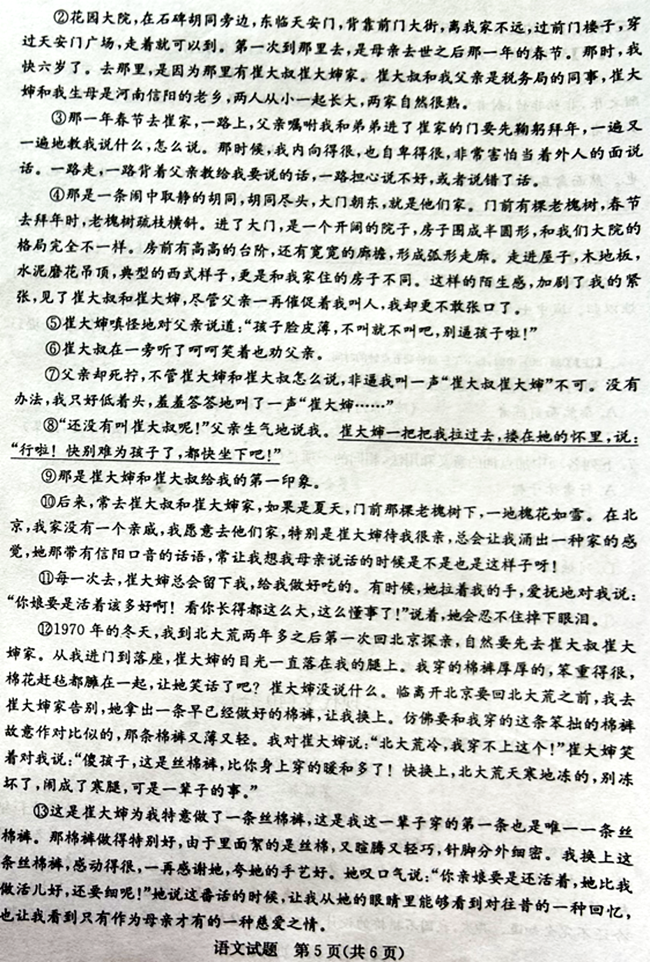 ②花园大院,在石碑胡同旁边,东临天安门,背靠前门大街,离我家不远,过前门楼子,穿
过天安门广场,走着就可以到。第一次到那里去,是母亲去世之后那一年的春节。那时,我
快六岁了。去那里,是因为那里有崔大叔崔大婶家。崔大叔和我父亲是税务局的同事,崔大
婶和我生母是河南信阳的老乡,两人从小一起长大,两家自然很熟。
③那一年春节去崔家,一路上,父亲嘱咐我和弟弟进了崔家的门要先鞠躬拜年,一遍又
一遍地教我说什么,怎么说。那时候,我内向得很,也自卑得很,非常害怕当着外人的面说
话。一路走,一路背着父亲教给我要说的话,一路担心说不好,或者说错了话。
④那是一条闹中取静的胡同,胡同尽头,大门朝东,就是他们家。门前有棵老槐树,春节
去拜年时,老槐树疏枝横斜。进了大门,是一个开阔的院子,房子围成半圆形,和我们大院的
格局完全不一样。房前有高高的台阶,还有宽宽的廊檐,形成弧形走廊。走进屋子,木地板,
水泥磨花吊顶,典型的西式样子,更是和我家住的房子不同。这样的陌生感,加剧了我的紧
张,见了崔大叔和崔大婶,尽管父亲一再催促着我叫人,我却更不敢张口了。
⑤崔大婶嗔怪地对父亲说道:“孩子脸皮薄,不叫就不叫吧,别逼孩子啦!”
⑥崔大叔在一旁听了呵呵笑着也劝父亲。
⑦父亲却死拧,不管崔大婶和崔大叔怎么说,非逼我叫一声“崔大叔崔大婶”不可。没有
办法,我只好低着头,羞羞答答地叫了一声“崔大婶……”
⑧“还没有叫崔大叔呢!”父亲生气地说我。崔大婶一把把我拉过去,搂在她的怀里,说:
“行啦!快别难为孩子了,都快坐下吧!”
⑨那是崔大婶和崔大叔给我的第一印象。
⑩后来,常去崔大叔和崔大婶家,如果是夏天,门前那棵老槐树下,一地槐花如雪。在北
京,我家没有一个亲戚,我愿意去他们家,特别是崔大婶待我很亲,总会让我涌出一种家的感
觉,她那带有信阳口音的话语,常让我想我母亲说话的时候是不是也是这样子呀!
⑪每一次去,崔大婶总会留下我,给我做好吃的。有时候,她拉着我的手,爱抚地对我说:
“你娘要是活着该多好啊!看你长得都这么大,这么懂事了!”说着,她会忍不住掉下眼泪。
⑫1970 年的冬天,我到北大荒两年多之后第一次回北京探亲,自然要先去崔大叔崔大
婶家。从我进门到落座,崔大婶的目光一直落在我的腿上。我穿的棉裤厚厚的,笨重得很,
棉花赶毡都臃在一起,让她笑话了吧?崔大婶没说什么。临离开北京要回北大荒之前,我去
崔大婶家告别,她拿出一条早已经做好的棉裤,让我换上。仿佛要和我穿的这条笨拙的棉裤
故意作对比似的,那条棉裤又薄又轻。我对崔大婶说:“北大荒冷,我穿不上这个!”崔大婶笑
着对我说:“傻孩子,这是丝棉裤,比你身上穿的暖和多了!快换上,北大荒天寒地冻的,别冻
坏了,闹成了寒腿,可是一辈子的事。”
⑬这是崔大婶为我特意做了一条丝棉裤,这是我这一辈子穿的第一条也是唯一一条丝
棉裤。那棉裤做得特别好,由于里面絮的是丝棉,又暄腾又轻巧,针脚分外细密。我换上这
条丝棉裤,感动得很,一再感谢她,夸她的手艺好。她叹口气说:“你亲娘要是还活着,她比我
做活儿好,还要细呢!”她说这番话的时候,让我从她的眼睛里能够看到对往昔的一种回忆,
也让我看到只有作为母亲才有的一种慈爱之情。
语文试题 第5页(共6页)